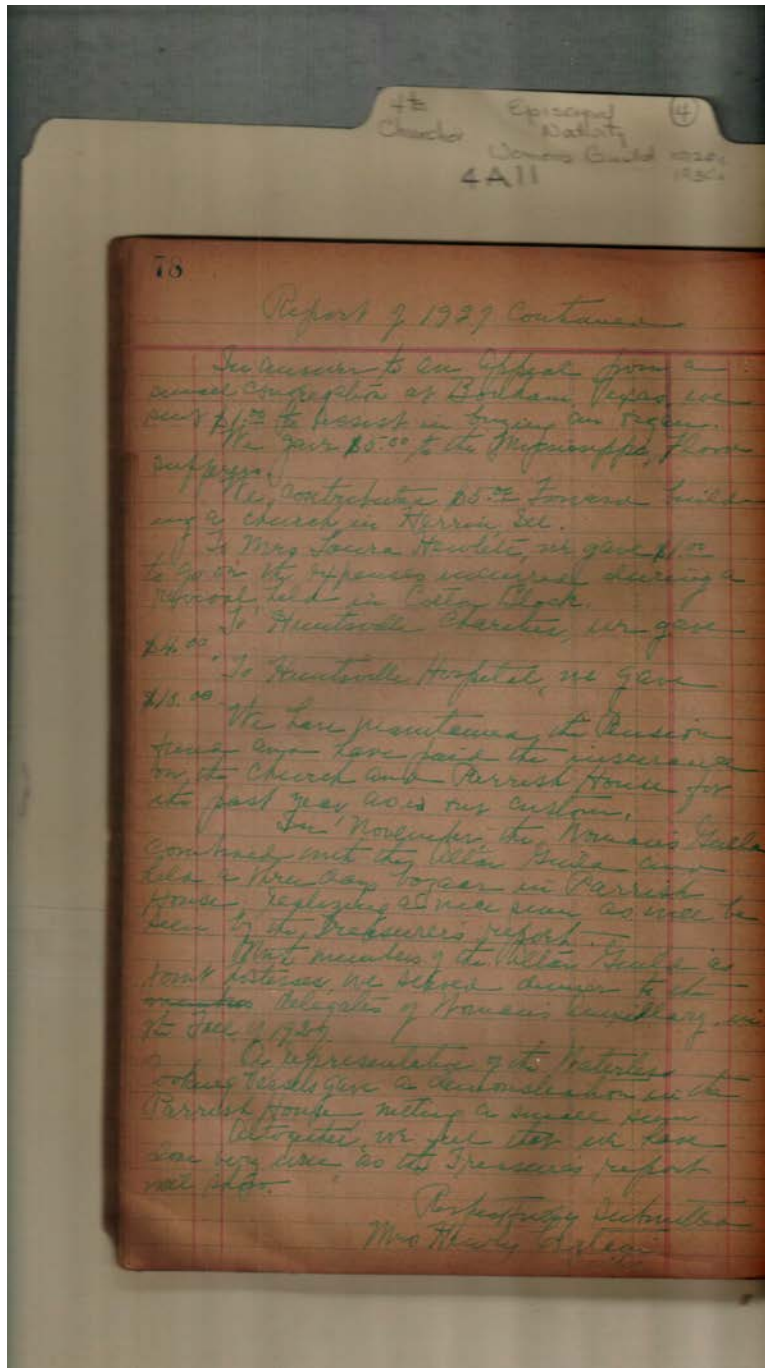 4th Episcopal ④
Churches Nativity
Womens Guild 1920s
4A11 1930s
78
Report of 1927 Continued
In answer to an appeal from a
small congregation at Bonham, Texas, we
sent $1.00 to assist in buying an organ.
We gave $5.00 to the Mississippi flood
sufferers.
We contributed $5.00 toward build-
ing a church in Herrin, Ill.
To Mrs Laura Hewlett, we gave $1.00
to go on the expenses incurred during a
revival held in Cotton Block.
To Huntsville Charities, we gave
$4.00.
To Huntsville Hospital, we gave
$15.00
We have maintained the Pension
fund and have paid the insurance
on the Church and Parrish House for
the past year, as is our custom.
In November, the Woman's Guild
combined with the Altar Guild and
held a three day bazaar in Parrish
House, realizing a nice sum as will be
seen by the Treasurer's report.
With members of the Altar Guild as
joint hostesses, we served dinner to the
delegates of Woman's Auxillary, in
the Fall of 1927
A representative of the Waterless
cooking vessels gave a demonstration in the
Parrish House, netting a small sum
Altogether, we feel that we have
done very well as the Treasurer's report
will show.
Respectfully Submitted
Mrs Henry